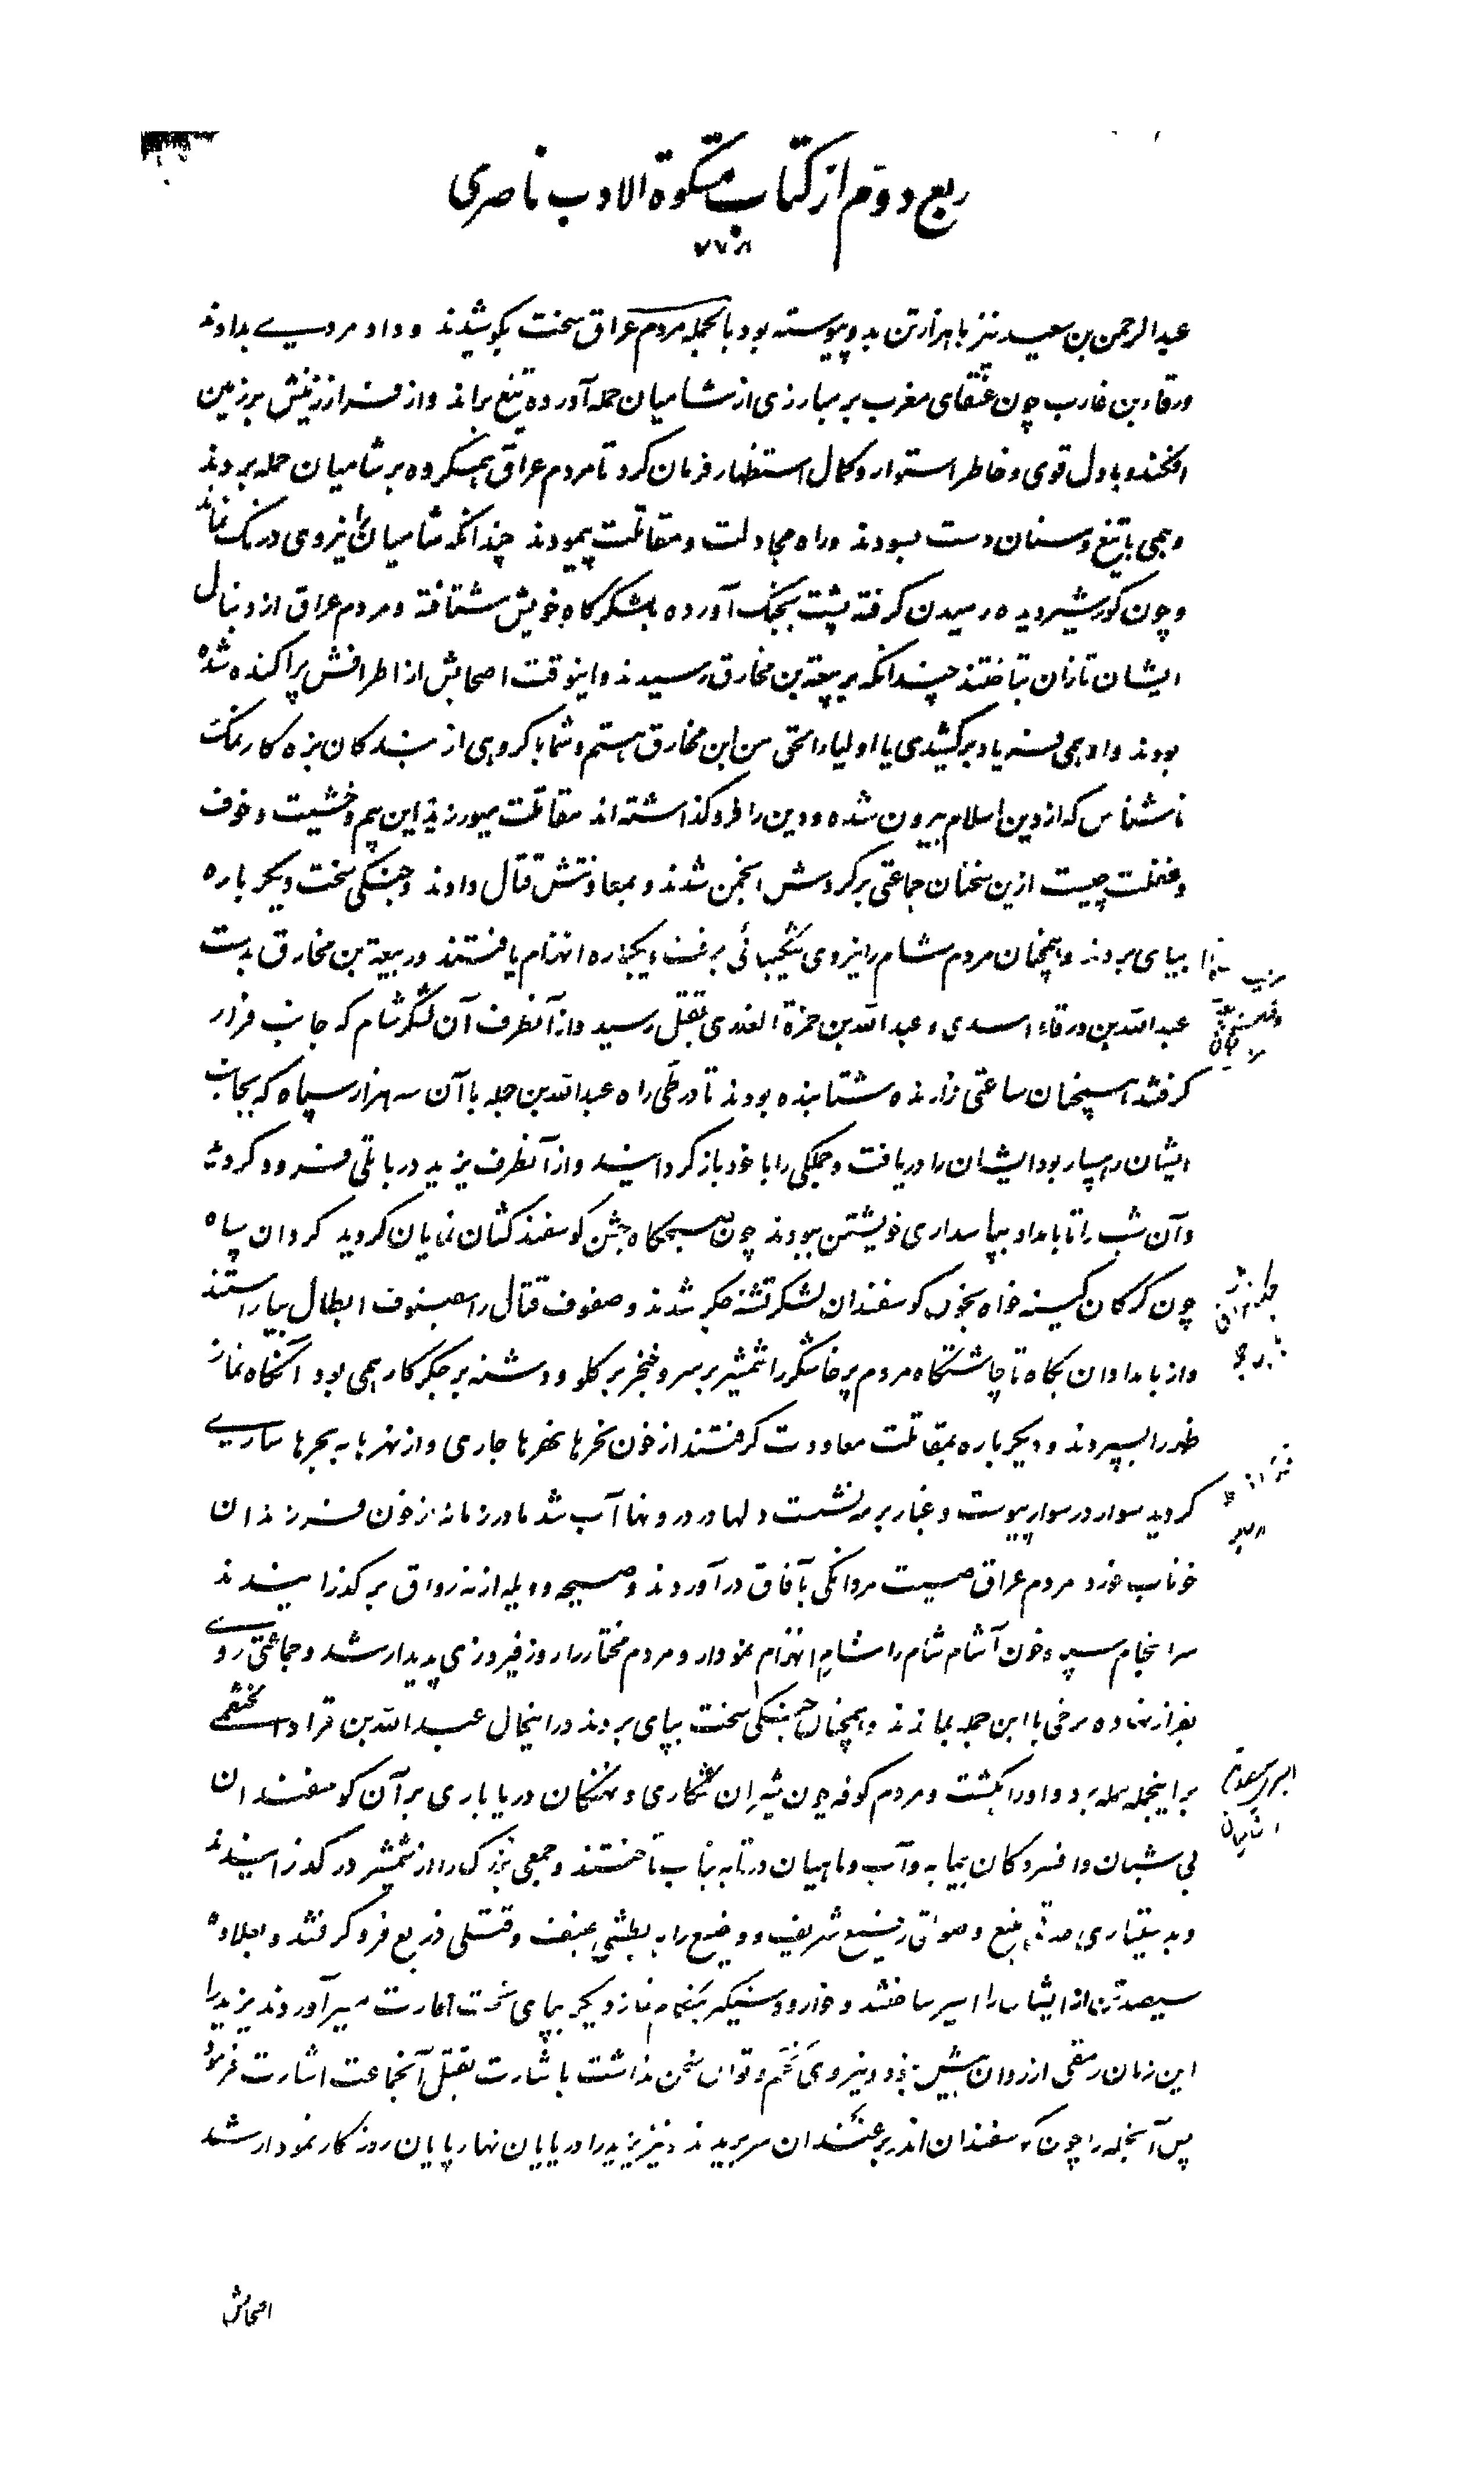 ربع دوم از کتاب مشکوة الادب ناصری
۷۷۸
عبدالرحمن بن سعید نیز با هزار تن بدو پیوسته بود بالجمله مردم عراق سخت بکوشیدند و داد مردی بدادند
ورقاء بن غارب چون عنقای مغرب بر مبارزی از شامیان حمله آورده تیغ براند و از فراز زینش بر زمین
افکند و با دل قوی و خاطر استوار و کمال استظهار فرمان کرد تا مردم عراق بجمله بر شامیان حمله بردند
و همی با تیغ و سنان دست بسودند و راه مجادلت و مقاتلت پیمودند چندانکه شامیان را نیروی درنگ نماند
و چون گور شیر دیده رمیدن گرفته پشت بجنگ آورده بلشکرگاه خویش شتافته و مردم عراق از دنبال
ایشان تازان بتاختند چندانکه بربیعة بن مخارق رسیدند و اینوقت اصحابش از اطرافش پراکنده شده
بودند و او همی فریاد برکشیدی یا اولیاء الحق من ابن مخارق هستم و شما با گروهی از بندگان بزه کار نمک
ناشناس که از دین اسلام بیرون شده و دین را فرو گذاشته اند مقاتلت میورزید این بیم و خشیت و خوف
و غفلت چیست ازین سخنان جماعتی بر گردش انجمن شدند و بمعاونتش قتال دادند و جنگی سخت دیگر باره
بپای بردند و همچنان مردم شام را نیروی شکیبائی برفت و یکباره انهزام یافتند و ربیعة بن مخارق بدست
عبدالله بن ورقاء اسدی و عبدالله بن حمزة العذری بقتل رسید و از آنطرف آن لشکر شام که جانب فرار
گرفتند همچنان ساعتی تازنده و شتابنده بودند تا در طی راه عبدالله بن حمله با آن سه هزار سپاه که بجانب
ایشان رهسپار بود ایشان را دریافت و جملگی را با خود باز گردانید و از آنطرف یزید در باتلی فرود گردید
و آن شب را تا بامداد بپاسداری خویشتن ببودند چون صبحگاه جشن گوسفند کشان نمایان گردید گردان سپاه
چون گرگان کینه خواه بخون گوسفندان لشکر تشنه جگر شدند و صفوف قتال را بصنوف ابطال بیاراستند
و از بامدادان پگاه تا چاشتگاه مردم پرخاشگر را شمشیر بر سر و خنجر بر گلو و دشنه بر جگر کار همی بود آنگاه نماز
ظهر را بسپردند و دیگر باره بمقاتلت معاودت گرفتند از خون نحرها نهرها جاری و از نهرها به بحرها ساری
گردید سوار در سوار پیوست و غبار بر مه نشست دلها در درونها آب شد مادر زمانه از خون فرزندان
خوناب خورد مردم عراق صیت مردانگی بآفاق درآوردند و صیحه و ویله از نه رواق بر گذرانیدند
سرانجام سپاه خون آشام شام را شام انهزام نمودار و مردم مختار را روز فیروزی پدیدار شد و جماعتی روی
بفرار نهاده برخی با ابن حمله بماندند و همچنان جنگی سخت بپای بردند در اینحال عبدالله بن قراد خثعمی
بر اینجمله حمله برد و او را بکشت و مردم کوفه چون شیران شکاری و نهنگان دریا باری بر آن گوسفندان
بی شبان و افسردگان بی‌مایه و آب و ماهیان در تابه بتاب تاختند و جمعی بزرگ را از شمشیر در گذرانیدند
و رفیع شریف و وضیع را به بطشی عنیف و قتلی ذریع فرو گرفتند و بعلاوه
سیصد تن از ایشان را اسیر ساختند و خوار و دستگیر هنگام نماز دیگر بپای تخت امارت میرآوردند یزید را
این زمان رمقی از روان بیش نبود و نیروی تکلم و توان سخن نداشت با شارت بقتل آنجماعت اشارت فرمود
پس آنجمله را چون گوسفندان اندر بر سر بریدند و نیز یزید را در پایان نهار پایان روزگار نمودار شد
اصحابش